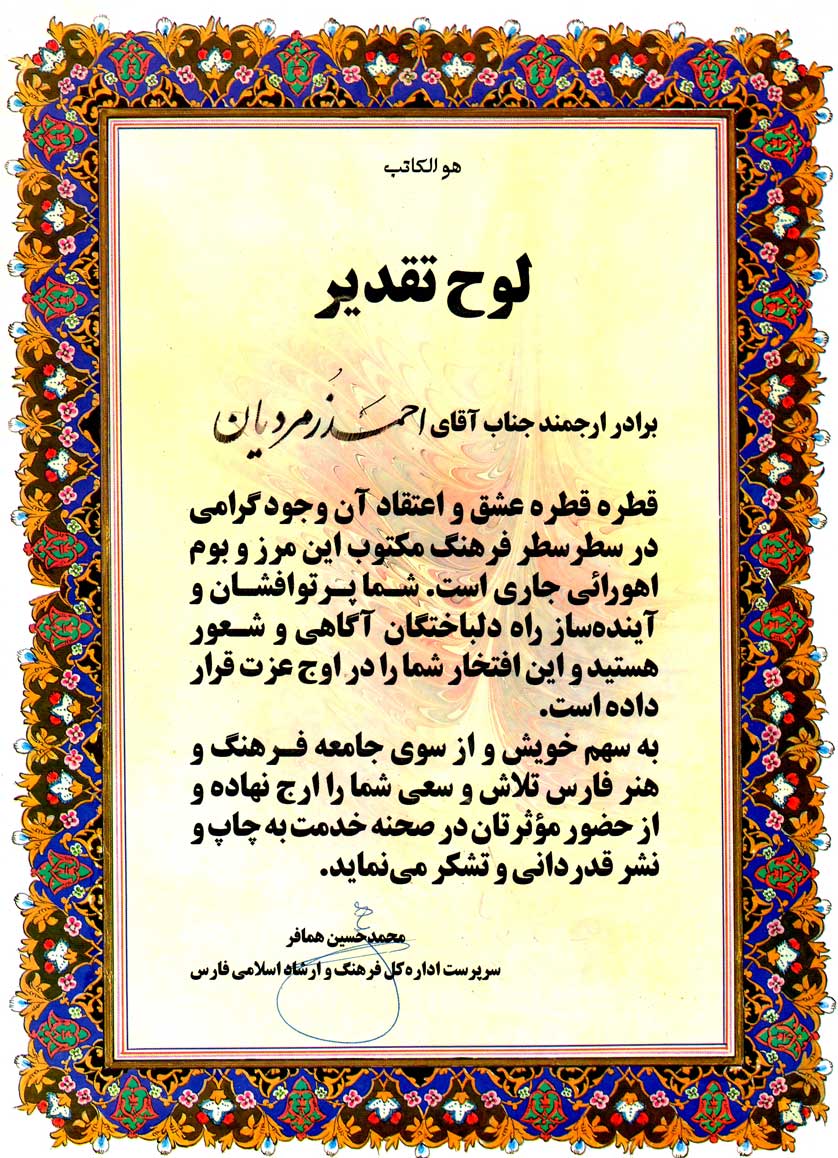 هو الکاتب
لوح تقدیر
برادر ارجمند جناب آقای احمد زمردیان
قطره قطره عشق و اعتقاد آن وجود گرامی
در سطر سطر فرهنگ مکتوب این مرز و بوم
اهورائی جاری است. شما پرتوافشان و
آینده‌ساز راه دلباختگان آگاهی و شعور
هستید و این افتخار شما را در اوج عزت قرار
داده است.
به سهم خویش و از سوی جامعه فرهنگ و
هنر فارس تلاش و سعی شما را ارج نهاده و
از حضور مؤثرتان در صحنه خدمت به چاپ و
نشر قدردانی و تشکر می‌نماید.
محمدحسین همافر
سرپرست اداره کل فرهنگ و ارشاد اسلامی فارس